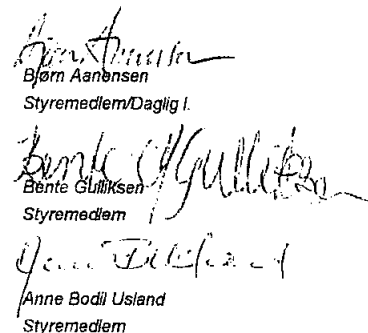 Bjørn Aanensen
Styremedlem/Daglig l.
Bente Gulliksen
Bente Gulliksen
Styremedlem
Anne Bodil Usland
Styremedlem